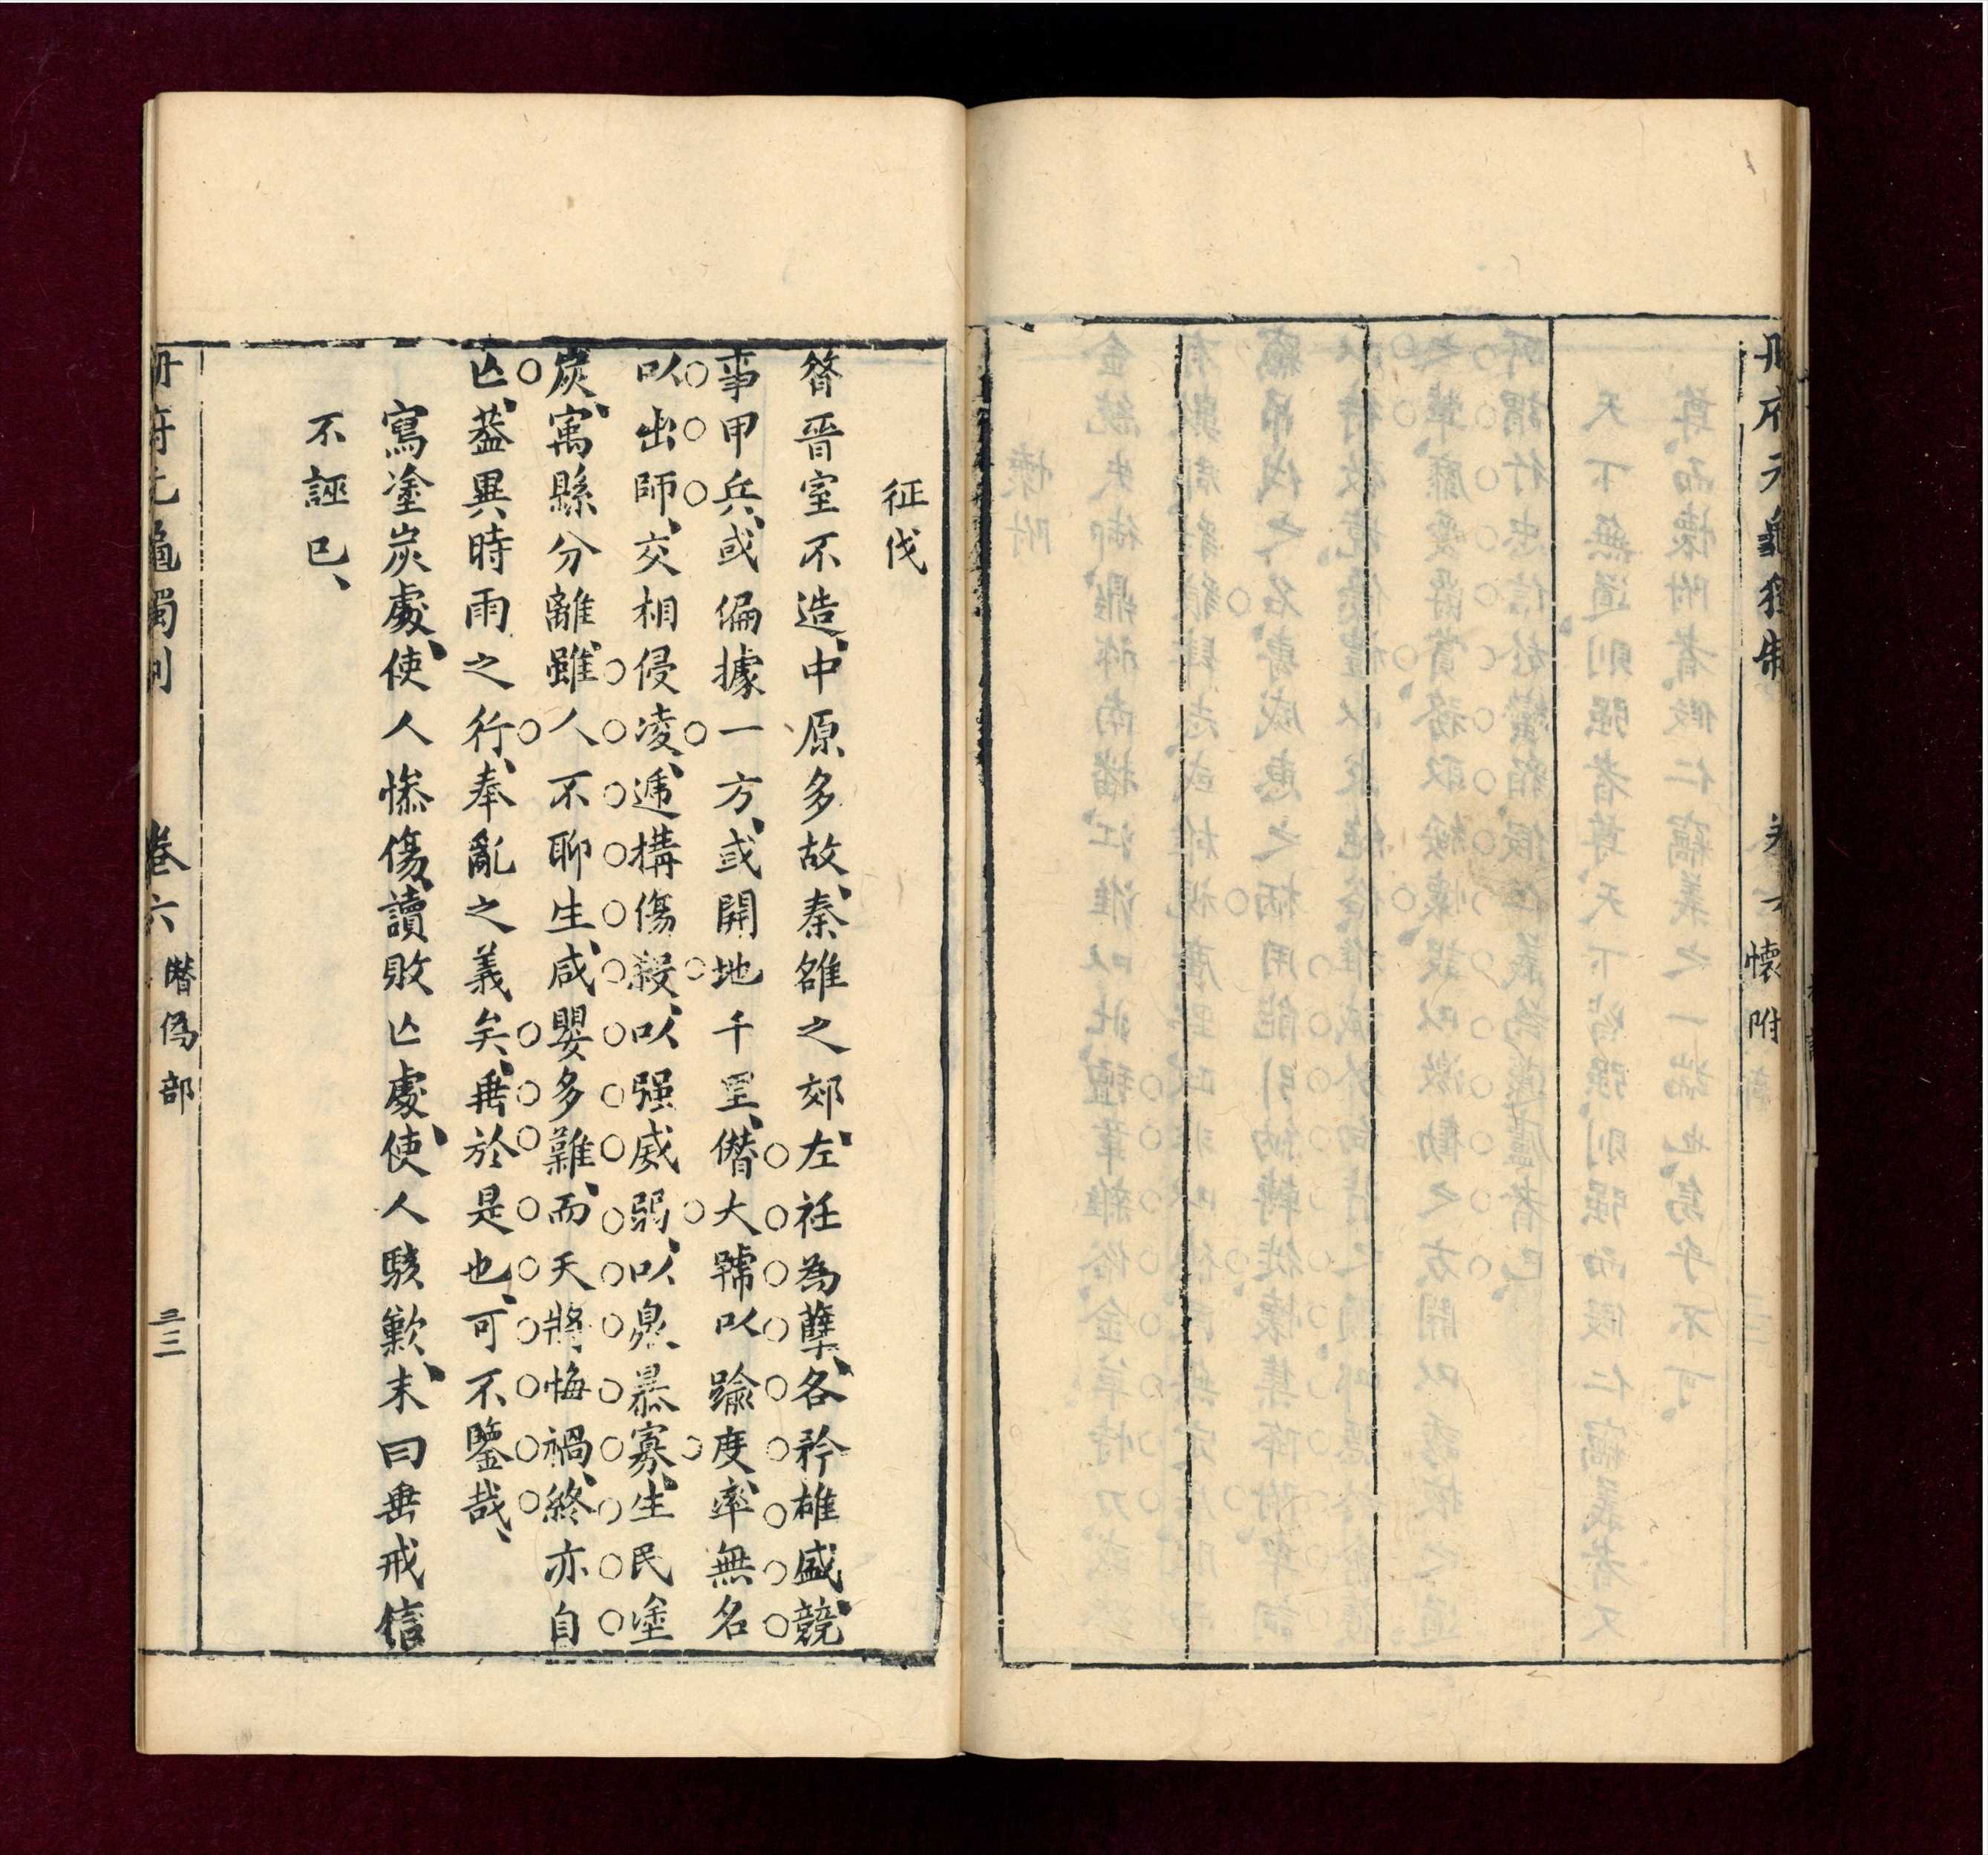 冊府元龜獨制　卷六　懷附
征伐
昝晉室不造、中原多故、秦雒之郊、左衽為孽、各矜雄盛、競
事甲兵、或偏據一方、或開地千里、僭大號以踰度、率無名
以出師、交相侵凌、遞搆傷殺、以强威弱、以衆暴寡、生民塗
炭、寓縣分離、雖人不聊生、咸嬰多難、而天將悔禍、終亦自
亾、葢異時雨之行、奉亂之義矣、垂於是也、可不鑒哉、
寫塗炭處、使人慘傷、讀敗亾處、使人駭歎、末曰垂戒信
不誣已、
冊府元龜獨制　卷六　僭偽部　三三